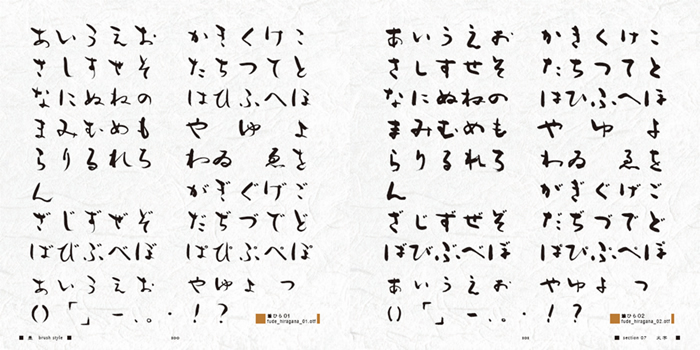 あいうえお かきくけこ
さしすせそ たちつてと
なにぬねの はひふへほ
まみむめも や ゆ よ
らりるれろ わゐ ゑを
ん がぎぐげご
ざじずぜぞ だぢづでど
ばびぶべぼ ぱぴぷぺぽ
ぁぃぅぇぉ ゃゅょ っ
()「」ー、。・!?
■ひら01
fude_hiragana_01.otf
brush style
あいうえお かきくけこ
さしすせそ たちつてと
なにぬねの はひふへほ
まみむめも や ゆ よ
らりるれろ わゐ ゑを
ん がぎぐげご
ざじずぜぞ だぢづでど
ばびぶべぼ ぱぴぷぺぽ
ぁぃぅぇぉ ゃゅょ っ
()「」ー、。・!?
■ひら02
fude_hiragana_02.otf
■ section 07